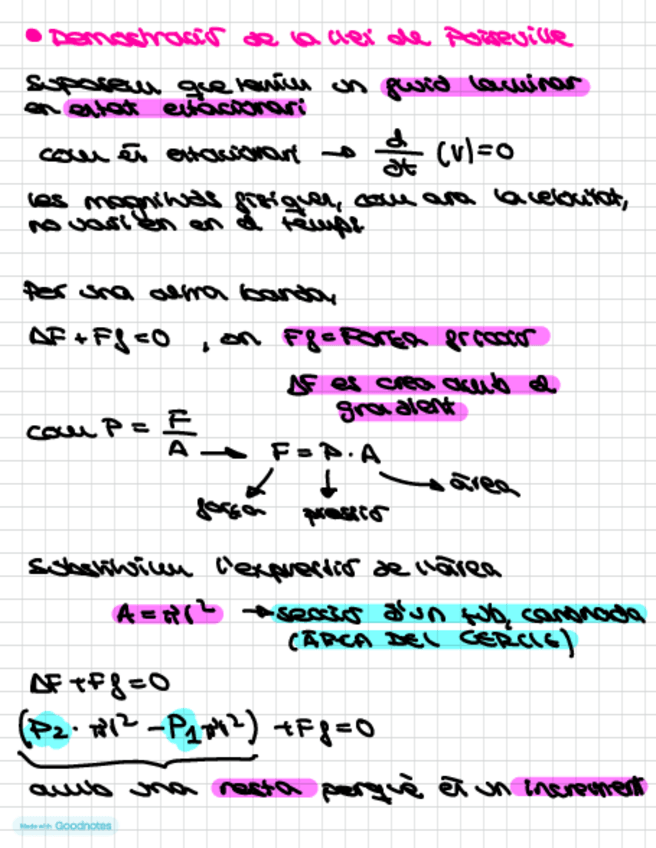 • Demostració de la llei de Poiseuille
Suposem que tenim un fluid laminar
en estat estacionari
com és estacionari → d/dt (v)=0
les magnituds físiques, com ara la velocitat,
no varien en el temps.
Per una altra banda,
ΔF + Ff = 0 , on Ff = Força fricció
ΔF es crea amb el
gradient
com P = F/A → F = P · A
força pressió àrea
Substituïm l'expressió de l'àrea
A = πr² → secció d'un tub, canonada
(ÀREA DEL CERCLE)
ΔF + Ff = 0
(P2 · πr² – P1 πr²) + Ff = 0
amb una resta perquè és un increment
Made with Goodnotes